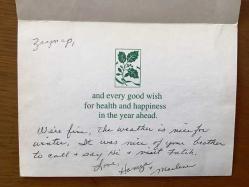 Zeynep,
and every good wish
for health and happiness
in the year ahead.
We're fine, the weather is nice for
winter. It was nice of your brother
to call & say hi & visit Fatih.
Love, Hamza &